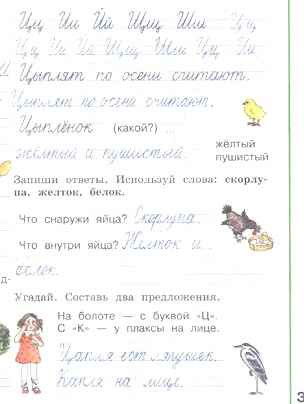 Цц Ии Йй Щщ Шш Цц
Цц Ии Йй Щщ Шш Цц Ии
Цыплят по осени считают.
Цыплят по осени считают.
Цыплёнок (какой?)
желтый и пушистый.
жёлтый
пушистый
Запиши ответы. Используй слова: скорлу-
па, желток, белок.
Что снаружи яйца? Скорлупа.
Что внутри яйца? Желток и
белок.
Угадай. Составь два предложения.
На болоте — с буквой «Ц».
С «К» — у плаксы на лице.
Цапля ест лягушек.
Капля на лице.